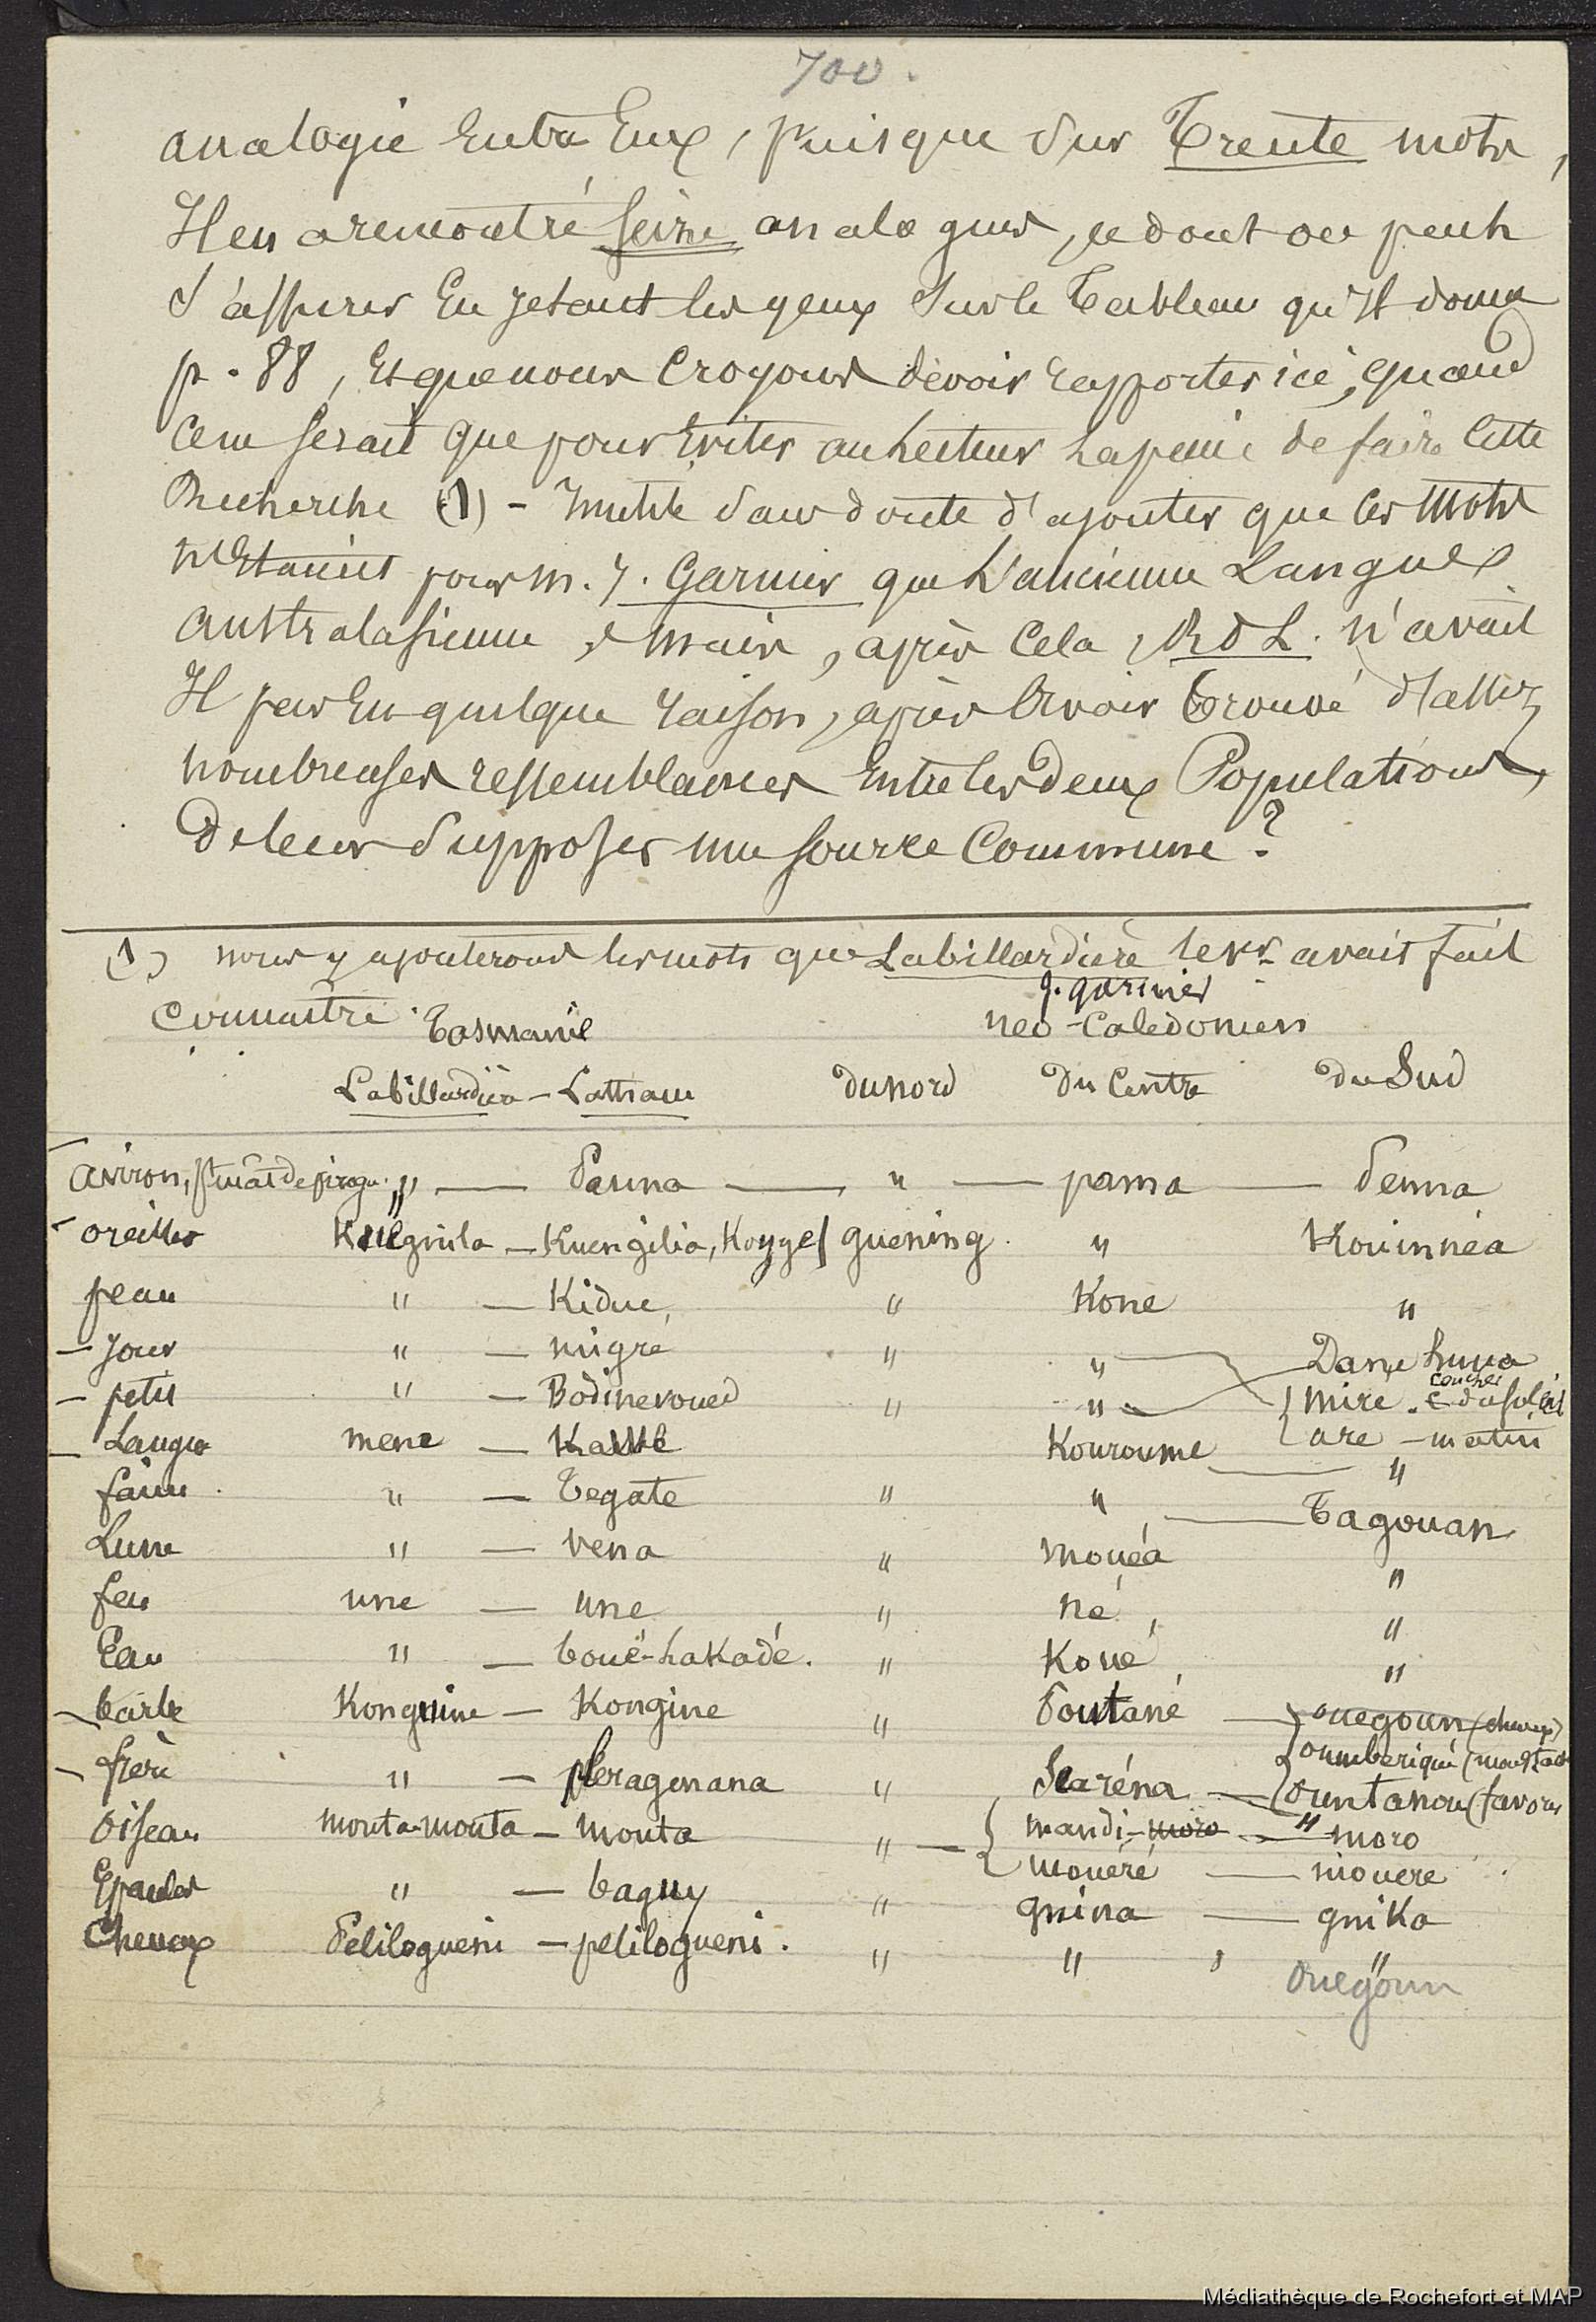 700.
analogie Entre Eux, puisque sur Trente mots,
Il en a rencontré Seize analogues, ce dont on peut
s'assurer En jetant les yeux sur le Tableau qu'Il donne
p. 88, Et que nous Croyons devoir rapporter ici, quand
Ce ne serait que pour Eviter au Lecteur La peine de faire Cette
Recherche (1) - Inutile sans doute d'ajouter que les Mots
n'Etaient pour M. J. Garnier que L'ancienne Langue
australasienne, mais, après Cela, R d L. n'avait
Il pas Eu quelque raison, après Avoir Trouvé d'assez
nombreuses ressemblances Entre les deux Populations,
de leur supposer une source Commune ?
(1) nous y ajouterons les mots que Labillardière avait fait
Connaître.
J. garnier
Tasmanie neo-Caledonien
Labillardière - Lattram du nord Du Centre du Sud
aviron, de pirogue " — Panna — " — pama — Penna
oreilles Kuegnila — Kuengilia, Koyge guening " Kouinnéa
peau " — Kidue, " Kone "
— Jour " — migré " " Dane huua
— petit " — Bodinevoued " " mire. coucher du soleil
— Langue mene — Kamé Kouroume are — matin
"
faim " — Tegate " " — Tagouan
Lune " — vena " mouéa "
feu une — une " né, "
Eau " — boué-lakadé. " Koué, "
barbe Konguine — Kongine " Poutané — ouegoun (cheveux)
oumberiqué (moustache
— frère " — pleragenana " Slaréna — ountanou (favoris
"
Oiseau mouta-mouta — mouta " — mandi-moro — moro
mouéré — mouere
Epaules " — baguy " gnina — gnika
Cheveux Pelilogueni — pelilogueni. " " "
ouegoun
Médiathèque de Rochefort et MAP